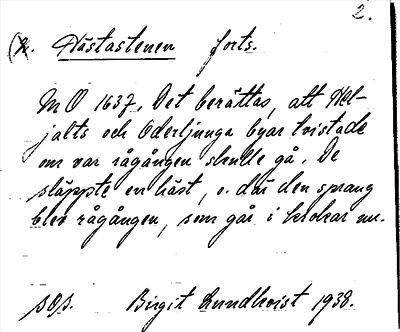 2.
(x. Hästastenen forts.
MO 1637. Det berättas, att Hel-
jalts och Oderljunga byar tvistade
om var rågången skulle gå. De
släppte en häst, o. där den sprang
blev rågången, som går i krokar nu.
s.o.s. Birgit Lundkvist 1938.